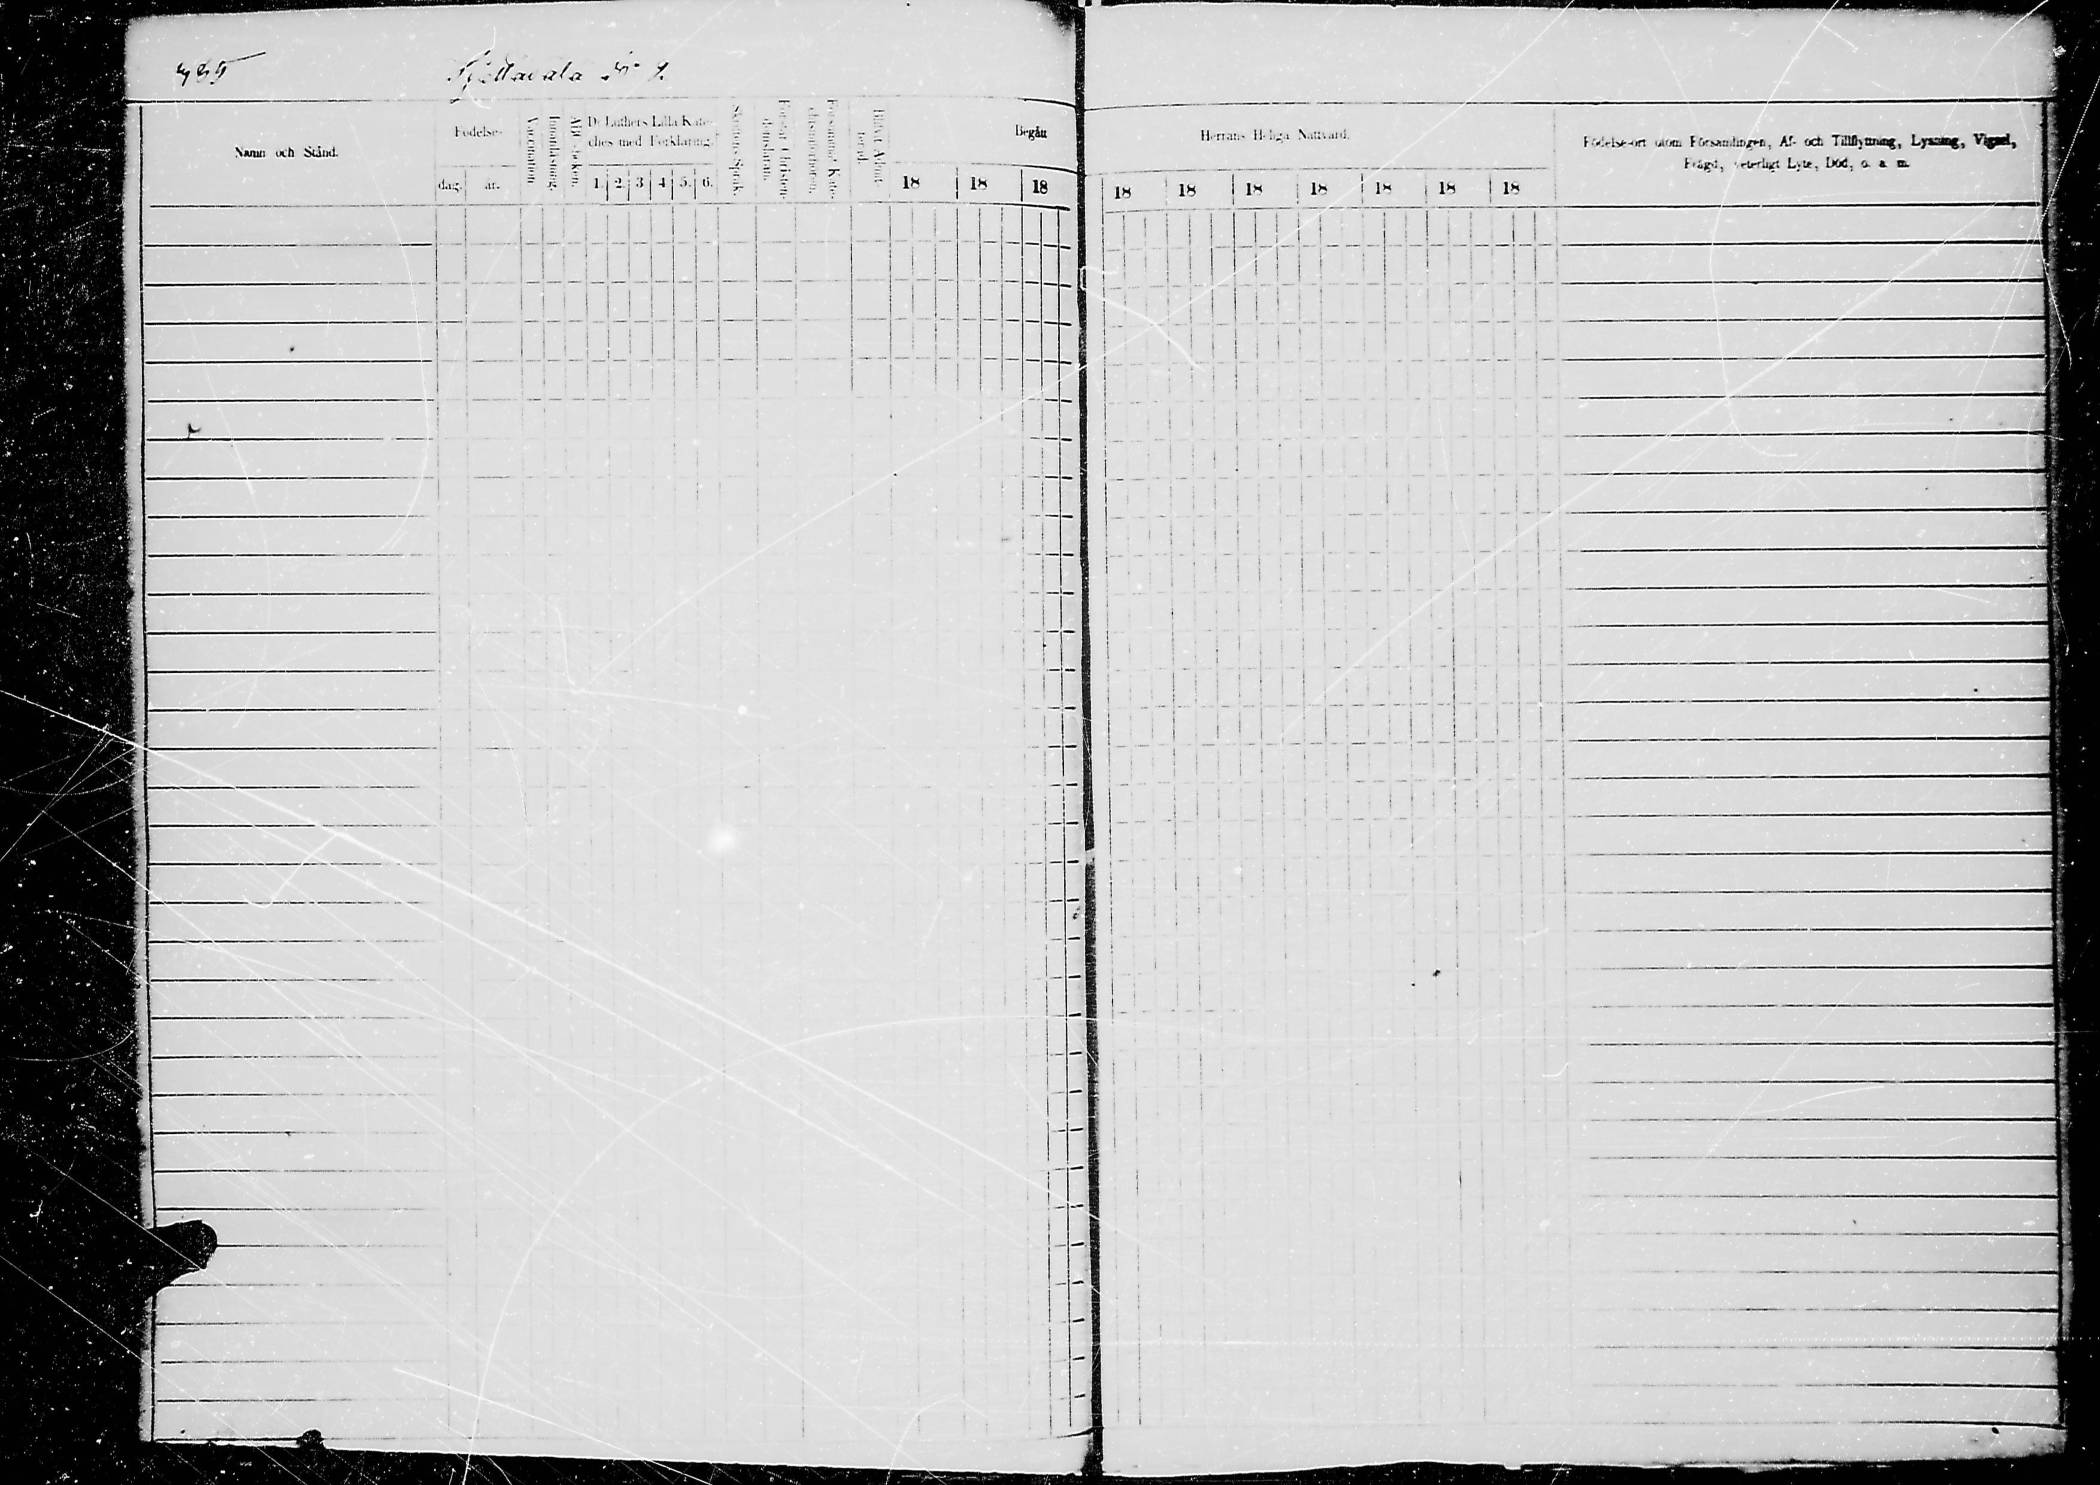 Namn och Stånd.
Födelse-
dag. år.
Vaccination.
Innanläsning.
Abc-boken.
D:r Luthers Lilla Kate-
ches med Förklaring.
1. 2. 3 4 5. 6.
Skriftens Språk.
Begått
18 18 18
Herrans Heliga Nattvard.
18 18 18 18 18 18 18
Födelse-ort utom Församlingen, Af- och Tillflyttning, Lysning, Vigsel,
Frägd, veterligt Lyte, Död, o. a. m.